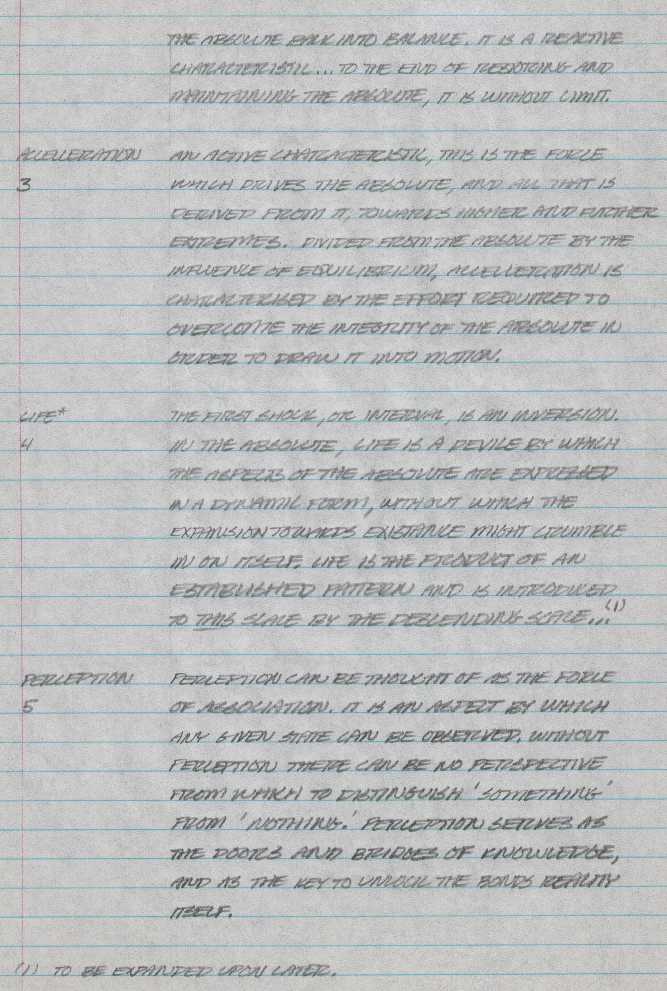 THE ABSOLUTE BACK INTO BALANCE. IT IS A REACTIVE
CHARACTERISTIC... TO THE END OF RESTORING AND
MAINTAINING THE ABSOLUTE, IT IS WITHOUT LIMIT.
ACCELLERATION AN ACTIVE CHARACTERISTIC, THIS IS THE FORCE
3 WHICH DRIVES THE ABSOLUTE, AND ALL THAT IS
DERIVED FROM IT, TOWARDS HIGHER AND FURTHER
EXTREMES. DIVIDED FROM THE ABSOLUTE BY THE
INFLUENCE OF EQUILIBRIUM, ACCELLERATION IS
CHARACTERISED BY THE EFFORT REQUIRED TO
OVERCOME THE INTEGRITY OF THE ABSOLUTE IN
ORDER TO DRAW IT INTO MOTION.
LIFE* THE FIRST SHOCK, OR INTERVAL, IS AN INVERSION.
4 IN THE ABSOLUTE, LIFE IS A DEVICE BY WHICH
THE ASPECTS OF THE ABSOLUTE ARE EXPRESSED
IN A DYNAMIC FORM, WITHOUT WHICH THE
EXPANSION TOWARDS EXISTANCE MIGHT CRUMBLE
IN ON ITSELF. LIFE IS THE PRODUCT OF AN
ESTABLISHED PATTERN AND IS INTRODUCED
TO THIS SCALE BY THE DESCENDING SCALE...(1)
PERCEPTION PERCEPTION CAN BE THOUGHT OF AS THE FORCE
5 OF ASSOCIATION. IT IS AN ASPECT BY WHICH
ANY GIVEN STATE CAN BE OBSERVED. WITHOUT
PERCEPTION THERE CAN BE NO PERSPECTIVE
FROM WHICH TO DISTINGUISH 'SOMETHING'
FROM 'NOTHING.' PERCEPTION SERVES AS
THE DOORS AND BRIDGES OF KNOWLEDGE,
AND AS THE KEY TO UNLOCK THE BONDS REALITY
ITSELF.
(1) TO BE EXPANDED UPON LATER.